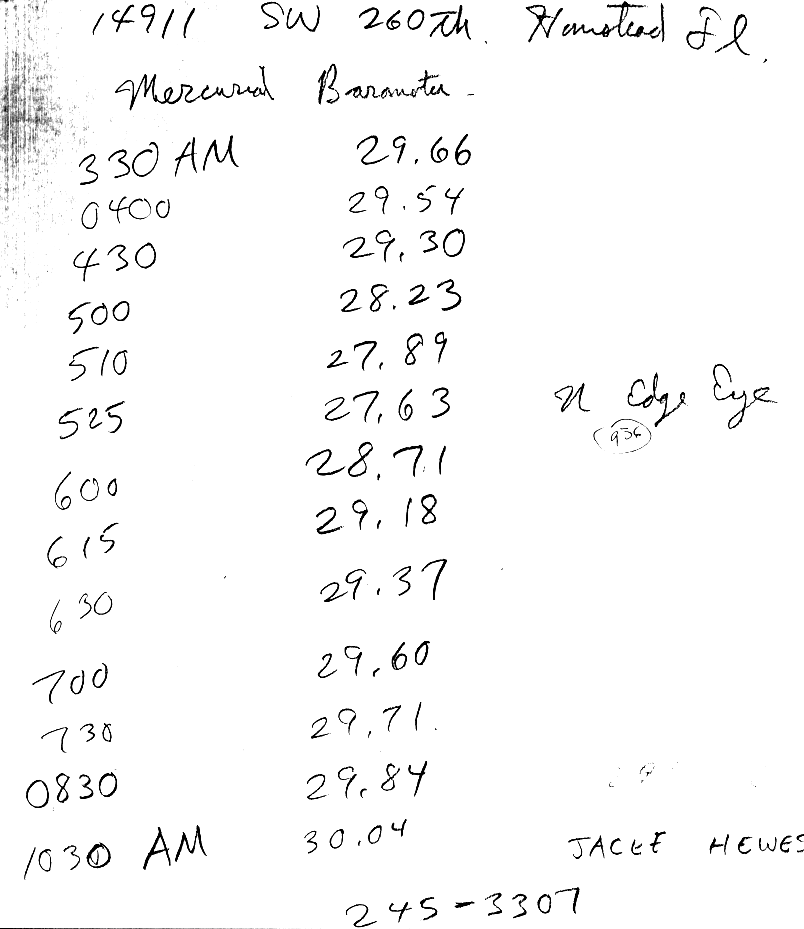 14911 SW 260th. Homestead Fl.
Mercurial Barometer -
330 AM 29.66
0400 29.54
430 29.30
500 28.23
510 27.89
525 27.63 N Edge Eye
(936)
600 28.71
615 29.18
630 29.37
700 29.60
730 29.71.
0830 29.84
1030 AM 30.04 JACKE HEWES
245-3307